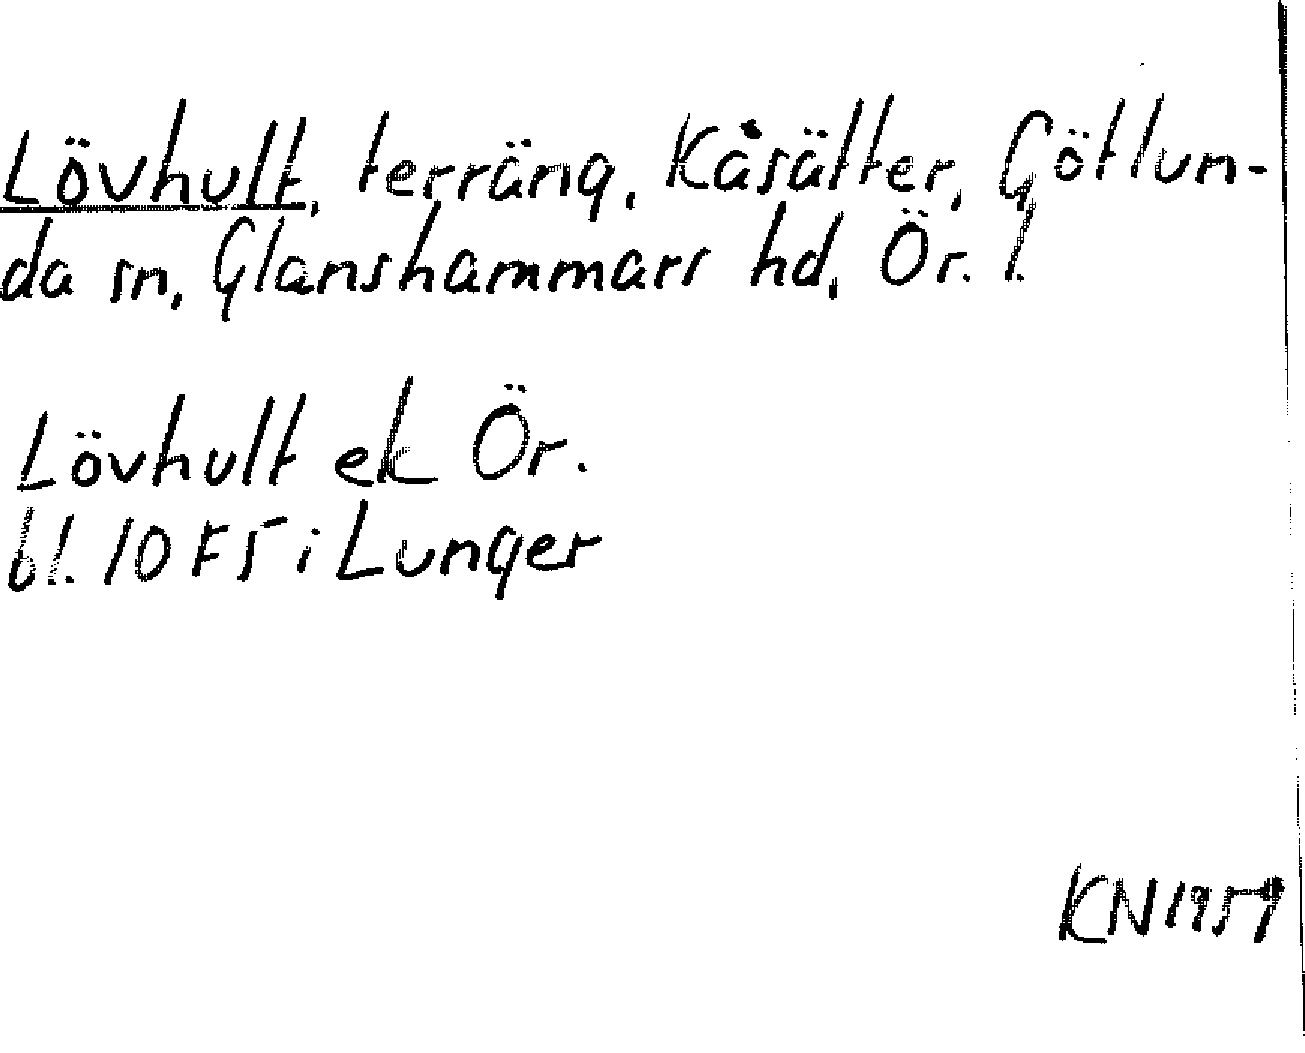 Lövhult, terräng, Kåsätter, Götlun-
da sn, Glanshammars hd, Ör. l.
Lövhult ek Ör.
bl. 10 F 5 i Lunger
KN 1959